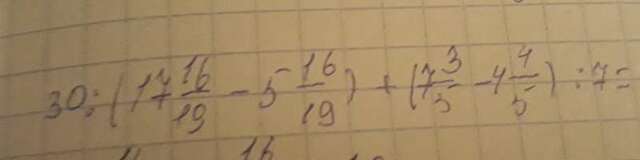 30:(17 16/19 - 5 16/19) + (7 3/5 - 4 4/5) : 7 =
16